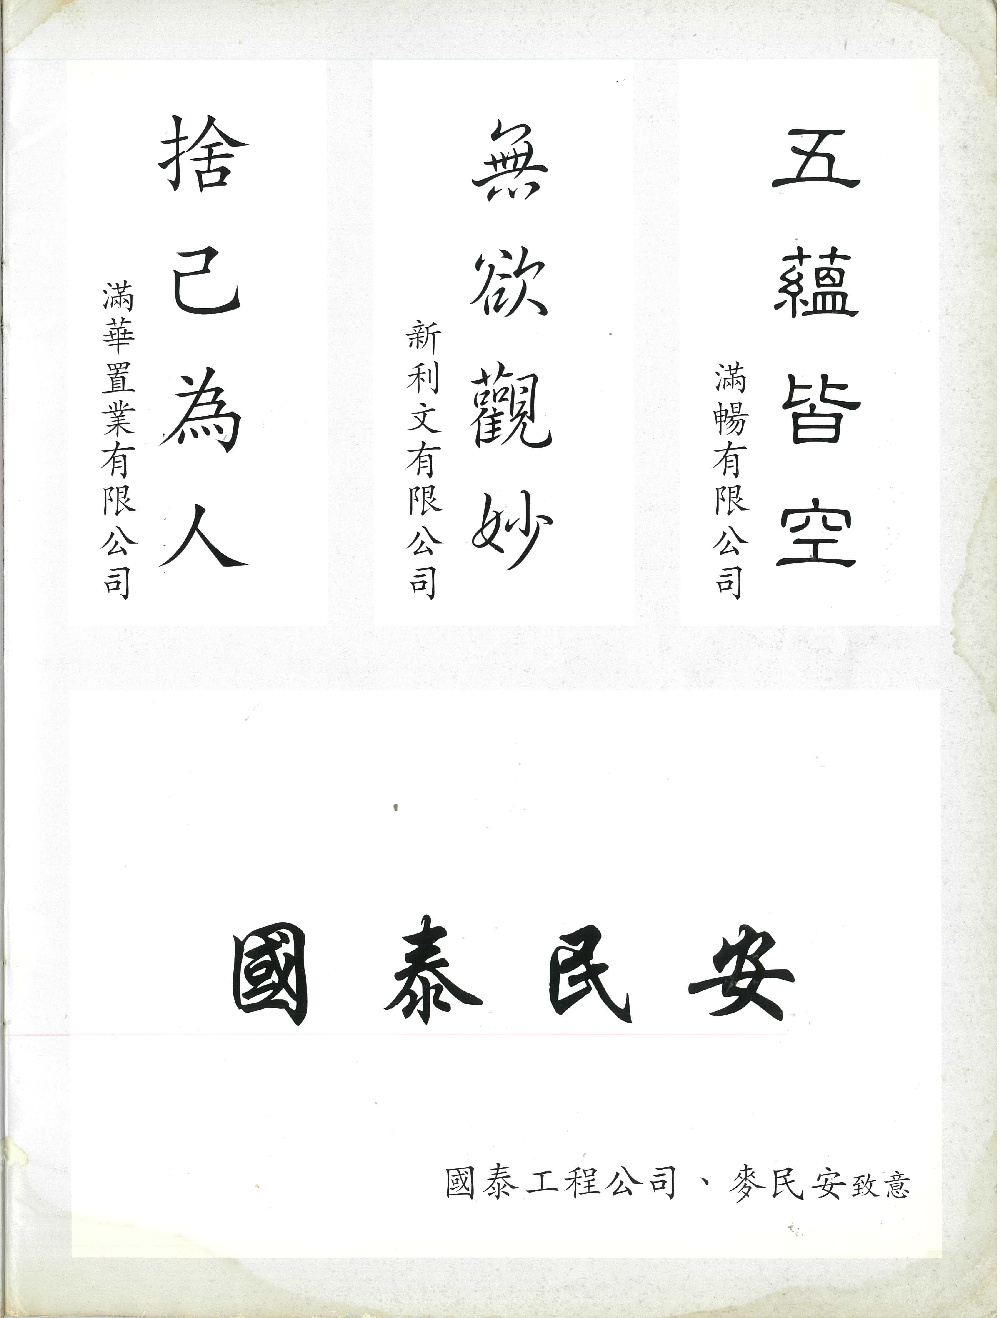 五蘊皆空
滿暢有限公司
無欲觀妙
新利文有限公司
捨己為人
滿華置業有限公司
國泰民安
國泰工程公司、麥民安致意